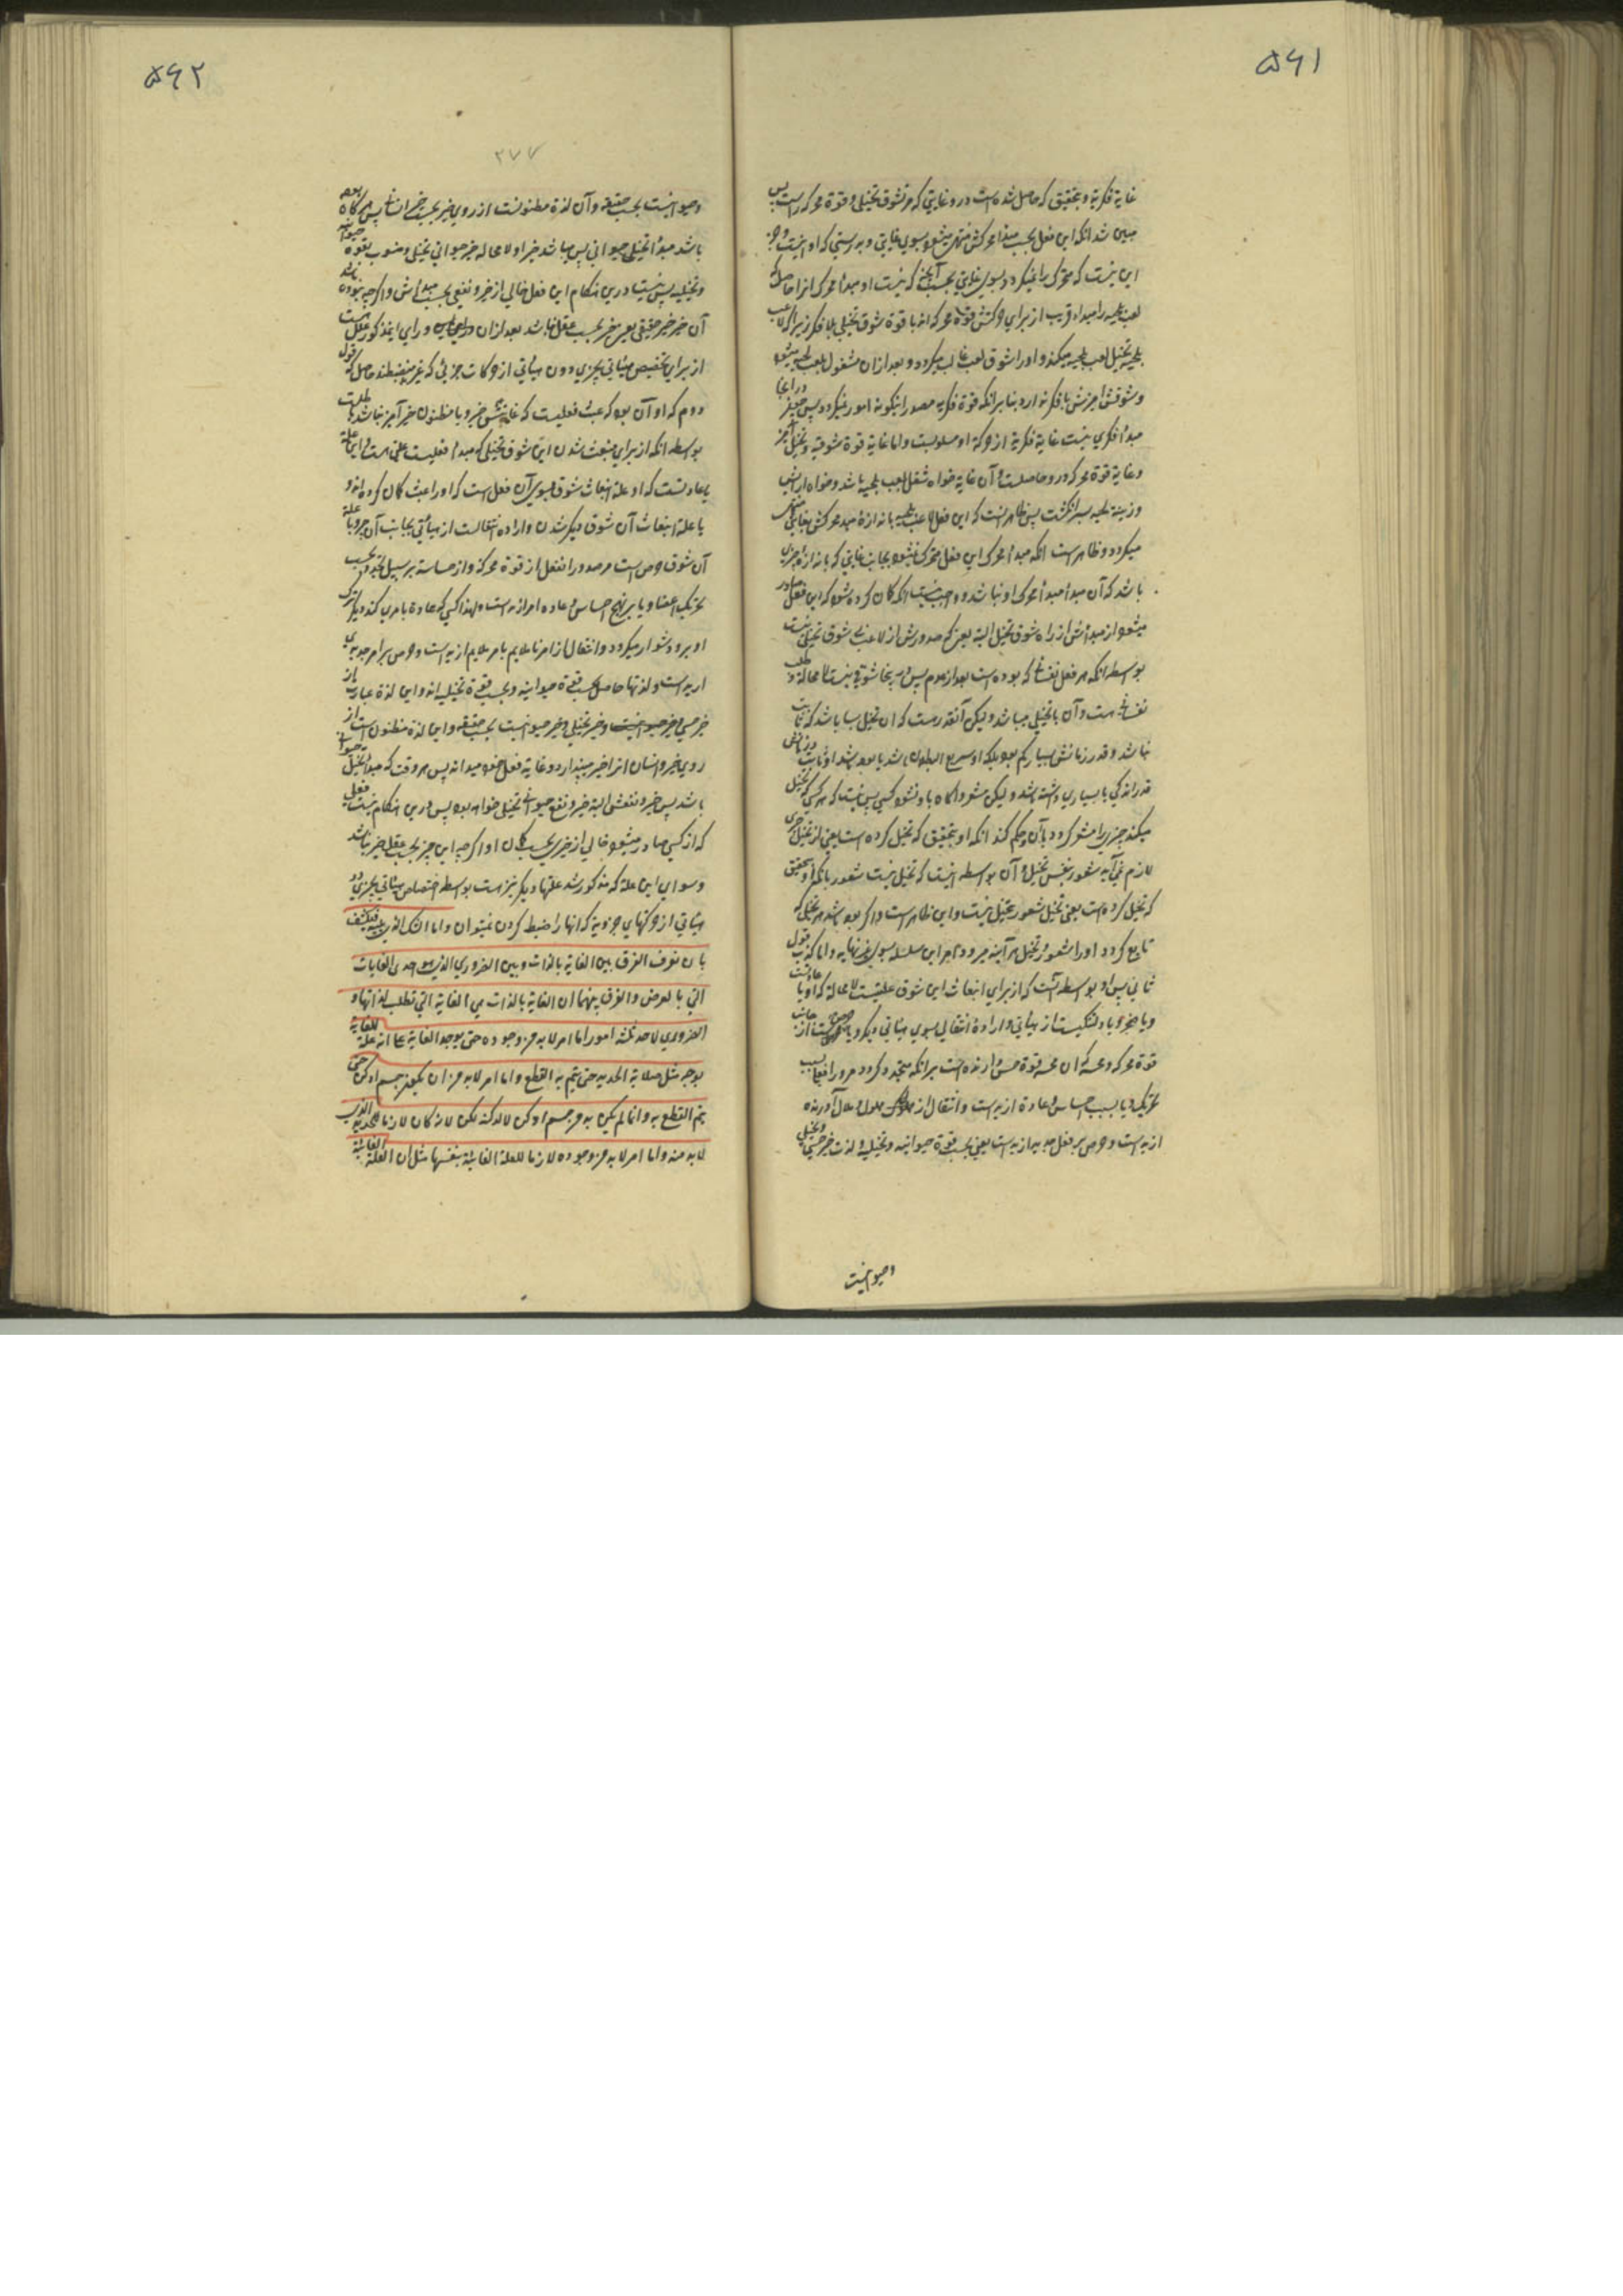 ۵۶۱
غایة فکریة و بتحقیق که حاصل شده است در و غایتی که مر تشوق تخیلی و قوة محرکه راست پس
مبین شد انکه این فعل بحسب مبدا محرکش منتهی میشود بسوی غایتی و بدرستی که او نیست و جز
این نیست که متحرک را نمیگردد بسوی غایتی بحسب آنچیز که نیست او مبدأ محرک انرا حاصل که
لعب بلحیه را مبداء قریب از برای حرکتش قوة محرکه اند با قوة شوق تخیلی بلا فکر زیرا که لاعب
بلحیه تخیل لعب بلحیه میکند و او را شوق لعب غالب میگردد و بعد از ان مشغول بلعب بلحیه میشود
و شوقش اجزش با فکر نه ارد بنا بر انکه قوة فکریه مصدر اینگونه امور نمیگردد پس چیز در اینجا
مبدأ فکری نیست غایة فکریة از حرکة او مسلوبست و اما غایة قوة شوقیه و تخیل اجز
و غایة قوة محرکه در و حاصلست و آن غایة خواه شغل لعب بلحیه باشد و خواه ارایش
و زینة لحیه بسر انگشت پس ظاهر انست که این فعل لاعب بلحیه باندازة مبدء محرکش بغایتی منتهی
میگردد و ظاهر است انکه مبدأ محرک این فعل متحرک نمیشود بجانب غایتی که باندازه چیزی
باشد که آن مبدأ مبدأ محرک او نباشد و واجب نیست انکه کان کرده شود که این فعل صادر
میشود از مبدأش از راه شوق تخیل البته یعنی که صدورش از لاعب بی شوق تخیلی نیست
بواسطه انکه هر فعل نفسانی که بوده است بعد از عدم پس در اینجا شوق نیست لا محاله و طلب
نفسانی هست و آن با تخیلی میباشد و لیکن آنقدر هست که ان تخیل بسا باشد که ثابت
نباشد و قدر زمانش بسیار کم بود بلکه او سریع البطلان باشد یا بود باشد او ثابت در زمانش
قدر اندکی یا بسیاری داشته باشد و لیکن مشعر و اگاه باو نشود کسی پس نیست که هر کسی که تخیل
میکند چیزی را مشعر گردد بآن و حکم کند انکه او بتحقیق که تخیل کرده است یعنی از تخیل چیزی
لازم نمی آید شعور بنفس تخیل و آن بواسطه انیست که تخیل نیست شعور بانکه او بتحقیق
که تخیل کرده است یعنی تخیل شعور بتخیل نیست و این ظاهر است و اگر بود باشد هر تخیل که
تابع گردد او را شعور بتخیل هر آینه میرود امر این سلسله بسوی غیر نهایه و اما کذب قول
ثانی پس او بواسطه آنست که از برای انبعاث این شوق علتیست لا محاله که او یا عادتست
و یا ضجر و یا دلتنگیست از هیأتی و ارادة انتقالی بسوی هیأتی دیگر و یا حرص است از جانب
قوة محرکه و محسه که ان محسه قوة حس و ارنده است بر انکه متجدد گردد مر او را فعل بسبب
تحریک و یا بسبب احساس و عادة ازیه است و انتقال از ملول و ملال آورنده
ازیه است و حرص بر فعل جدید ازیه است یعنی بحسب قوة حیوانیه و تخیلیه و لذت خیر حسی و تخیلی
و حیوانیست
۵۶۲
۲۷۷
و حیوانیست بحسب حقیقه و آن لذة مظنونست از روی خیر بحسب خیر انسانی پس هر کاه بوده
باشد مبدأ تخیلی حیوانی پس میباشد خیر او لا محاله خیر حیوانی تخیلی و منسوب بقوة حیوانیه
و تخیلیه پس نیست درین هنکام این فعل خالی از خیر و نفعی بحسب مبدأش و اگرچه نبوده باشد
آن خیر خیر حقیقی یعنی خیر بحسب عقل نباشد بعد از ان و رای اینمذکور علل هست
از برای تخصیص هیأتی بچیزی دون هیأتی از حرکات جزئی که غیر منضبطند حاصل که قول
دوم که او آن بود که عبث فعلیست که غایتش خیر و یا مظنون خیر آمیز نباشد باطلست
بواسطه انکه از برای منبعث شدن این شوق تخیلی که مبدأ فعلیست علتی هست و این علة
یا عادتست که او علة انبعاث شوق بسوی آن فعل است که او را عبث کان کرده اند و
یا علة انبعاث آن شوق دیگر شدن و اراده انتقالست از هیأتی بجانب آن چیز و یا علة
آن شوق حرص است مر صدور را نفعل از قوة محرکه و از حساسه بر سبیل تجدد بحسب
تحریک اعضا و یا بر نهج احساس و عاده امر ازیه است و لهذا کسی که عادة بامری کند دیگر ترک
او بر و دشوار میگردد و انتقال از امر ناملایم بامر ملایم ازیه است و حرص بر امر جدیدی
ازیه است و لذتها حاصل بحسب قوة حیوانیه و بحسب قوة تخیلیه اند و این لذة عبارت از
خیر حسی و خیر حیوانیست و خیر تخیلی و خیر حیوانیست بحسب حقیقه و این لذة مظنون است از
روی خیر و انسان انرا خیر میپندارد و غایة فعل خود میداند پس هر وقت که مبدأ تخیل حیوانی
باشد پس خیر و نفعش البته خیر و نفع حیوانی تخیلی خواهد بود پس درین هنکام نیست فعلی
که از کسی صادر میشود خالی از خیری بحسب کان او اگرچه این چیز بحسب عقل خیر نباشد
و سوای این علة که مذکور شد علتهای دیگر نیز هست بواسطه اختصاص هیأتی بچیزی دون
هیأتی از حرکتهای جزویه که انها را ضبط کردن نمیتوان و اما الشک الذی یلیه فینکشف
بان نعرف الفرق بین الغایة بالذات و بین الضروری الذی هو احدی الغایات
التی بالعرض و الفرق بینهما ان الغایة بالذات هی الغایة التی تطلب لذاتها و
الضروری لاحد ثلثه امور اما امر لابد من وجوده حتی یوجد الغایة علی انه علة للغایة
بوجه مثل صلابة الحدید حتی یتم به القطع و اما امر لابد من ان یکون جسم ادکن حتی
یتم القطع به و انما لم یکن به من جسم ادکن لا لدکنته لکن لانه کان لازما للحدید الذی
لابد منه و اما امر لابد من وجوده لازما للعلة الغائیة بنفسها مثل ان العلة الغائیة